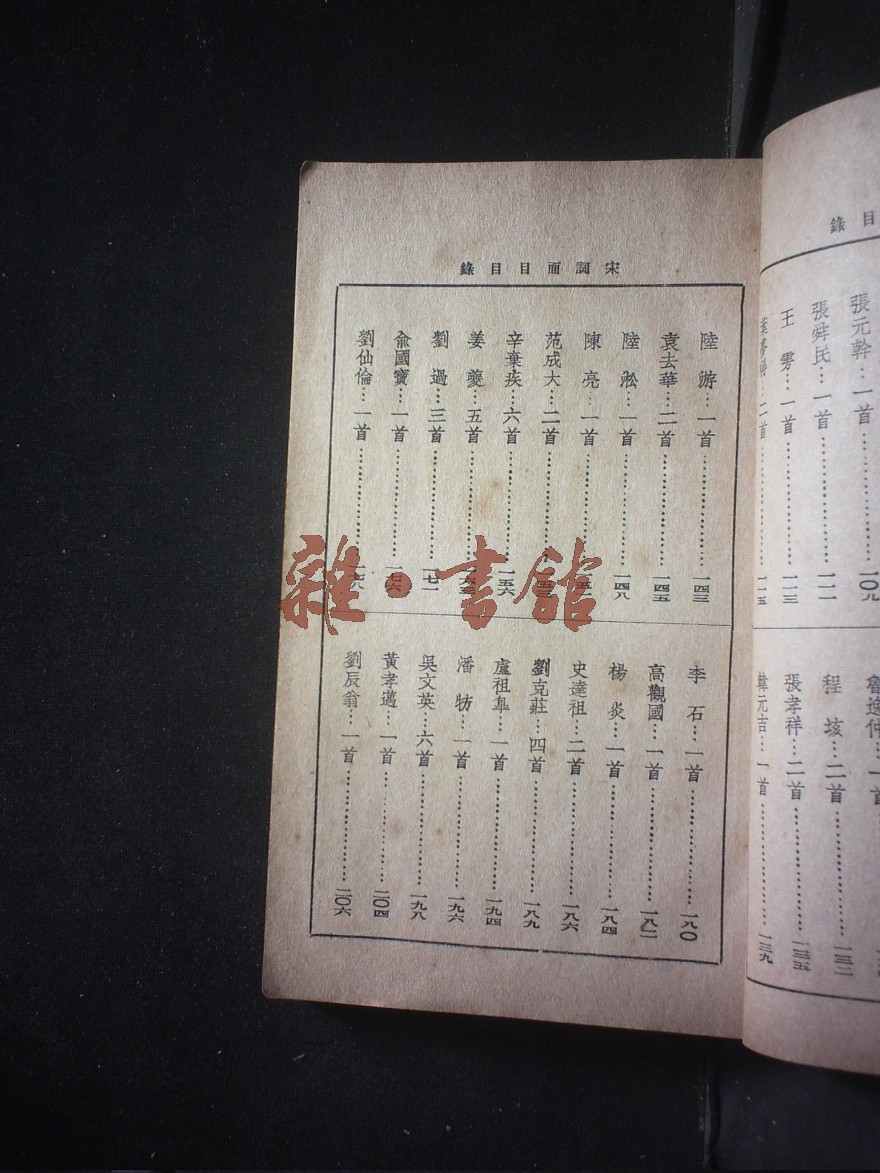 目錄
張元幹…一首…一〇九
張舜民…一首…一一一
王雱…一首…一一三
葉夢得…二首…一一五
魯逸仲…一首
程垓…二首…一三二
張孝祥…二首…一三五
韓元吉…一首…一三九
宋詞面目目錄
陸游…一首…一四三
袁去華…二首…一四五
陸淞…一首…一四八
陳亮…一首
范成大…二首
辛棄疾…六首…一五六
姜夔…五首
劉過…三首…一七一
俞國寶…一首…一七六
劉仙倫…一首…一七八
李石…一首…一八〇
高觀國…一首…一八二
楊炎…一首…一八四
史達祖…二首…一八六
劉克莊…四首…一八九
盧祖皋…一首…一九四
潘牥…一首…一九六
吳文英…六首…一九八
黃孝邁…一首…二〇四
劉辰翁…一首…二〇六
雜·書館